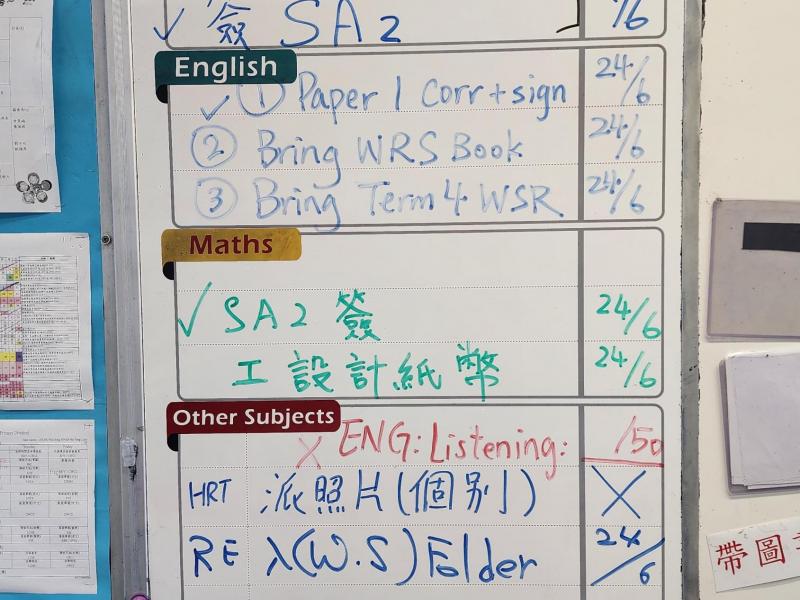 ✓ 簽 SA2 /6
English
✓ ① Paper 1 Corr + sign 24/6
② Bring WRS Book 24/6
③ Bring Term 4 WSR 24/6
Maths
✓ SA2 簽 24/6
工 設計紙幣 24/6
Other Subjects
X ENG: Listening: /50
HRT 派照片(個別) X
RE 入(W.S) Folder 24/6
帶圖